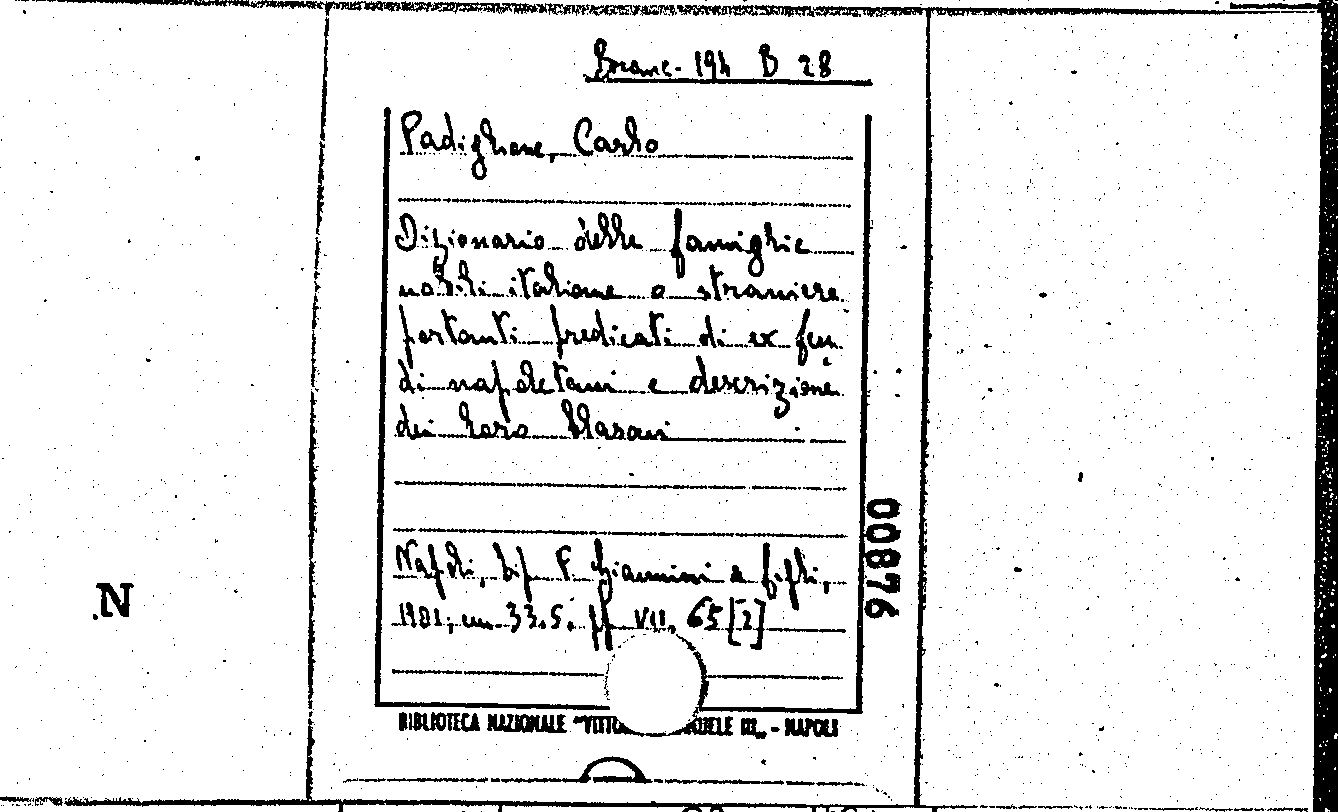 Branc. 194 B 28
Padiglione, Carlo
Dizionario delle famiglie
nobili italiane o straniere
portanti predicati di ex feu
di napoletani e descrizione
dei loro blasoni
Napoli, tip. F. Giannini & figli,
1901; cm 33.5. pp VII, 65 [2]
00876
N
BIBLIOTECA NAZIONALE "VITTO UELE III„ - NAPOLI